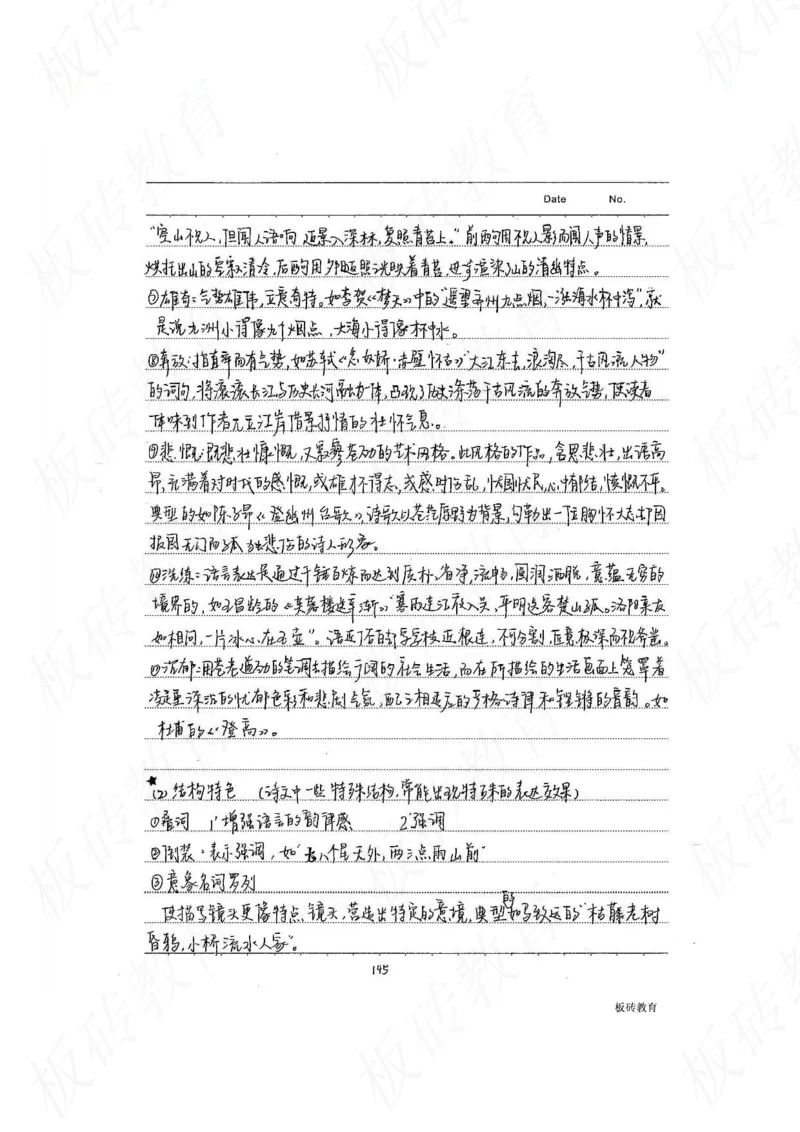 Date No.
"空山不见人,但闻人语响 返景入深林,复照青苔上。"前两句用不见人影而闻人声的情景,
烘托出山的空寂清冷,后两句用夕阳返照洗映着青苔,进一步渲染了山的清幽特点。
⑦雄奇:气势雄伟,立意奇特。如李贺《梦天》中的"遥望齐州九点烟,一泓海水杯中泻",就
是说九洲小得像九个烟点,大海小得像杯中水。
⑧奔放:指直率而有气势,如苏轼《念奴娇·赤壁怀古》"大江东去,浪淘尽,千古风流人物"
的词句,将滚滚长江与历史长河融为一体,凸现了历史涤荡千古风流的奔放气势,使读者
体味到作者兀立江岸借景抒情的壮怀气息。
⑨悲慨:既悲壮慷慨,又最苍劲的艺术风格。此风格的作品,含思悲壮,出语高
昂,充满着对时代的感慨,或雄才不得志,或感时伤乱,忧国忧民,心情郁结,愤慨不平。
典型的如陈子昂《登幽州台歌》,诗歌以苍茫原野为背景,勾勒出一位胸怀大志却因
报国无门而孤独悲伤的诗人形象。
⑩洗练:语言表达是通过千锤百炼而达到质朴、省净,流畅,圆润洒脱,意蕴无穷的
境界的,如王昌龄的《芙蓉楼送辛渐》"寒雨连江夜入吴,平明送客楚山孤。洛阳亲友
如相问,一片冰心在玉壶"。
⑪沉郁:用苍老遒劲的笔调去描绘广阔的社会生活,而在所描绘的生活画面上笼罩着
凝重深沉的忧郁色彩和悲剧气氛,配以相适应的严格诗律和铿锵的音韵。如
杜甫的《登高》。
★
(2)结构特色 (诗文中一些特殊结构,常能出现特殊的表达效果)
①叠词 1'增强语言的韵律感 2'强调
②倒装:表示强调,如"七八个星天外,两三点雨山前"
③意象名词罗列
使描写镜头更像特点、镜头,营造出特定的意境,典型的如马致远的"枯藤老树
昏鸦,小桥流水人家"。
145
板砖教育